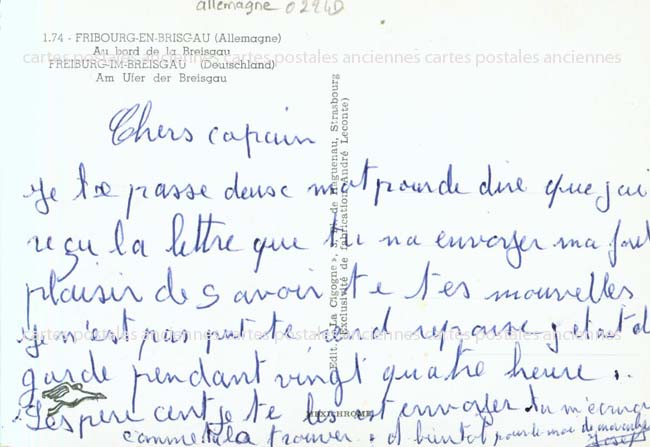 allemagne 0294D
1.74 - FRIBOURG-EN-BRISGAU (Allemagne)
Au bord de la Breisgau
cartes postales anciennes cartes postales anciennes cartes postales anciennes
FREIBURG-IM-BREISGAU (Deutschland)
Am Ufer der Breisgau
Edit. « La Cigogne », de Haguenau, Strasbourg
(Exclusivité de fabrication André Leconte)
Chers copain
Je te passe deuse mot pour de dire que j'ai
reçu la lettre que tu na envoyer ma fort
plaisir de savoir te tes nouvelles
cartes postales anciennes cartes postales anciennes cartes postales anciennes
Je n'est pas put te rend reponse j etait d
garde pendant vingt quatre heure.
J'espere cent je te les est envoyer tu m'ecrira
MEXICHROME
comment la trouver. a bientot pour le moi de